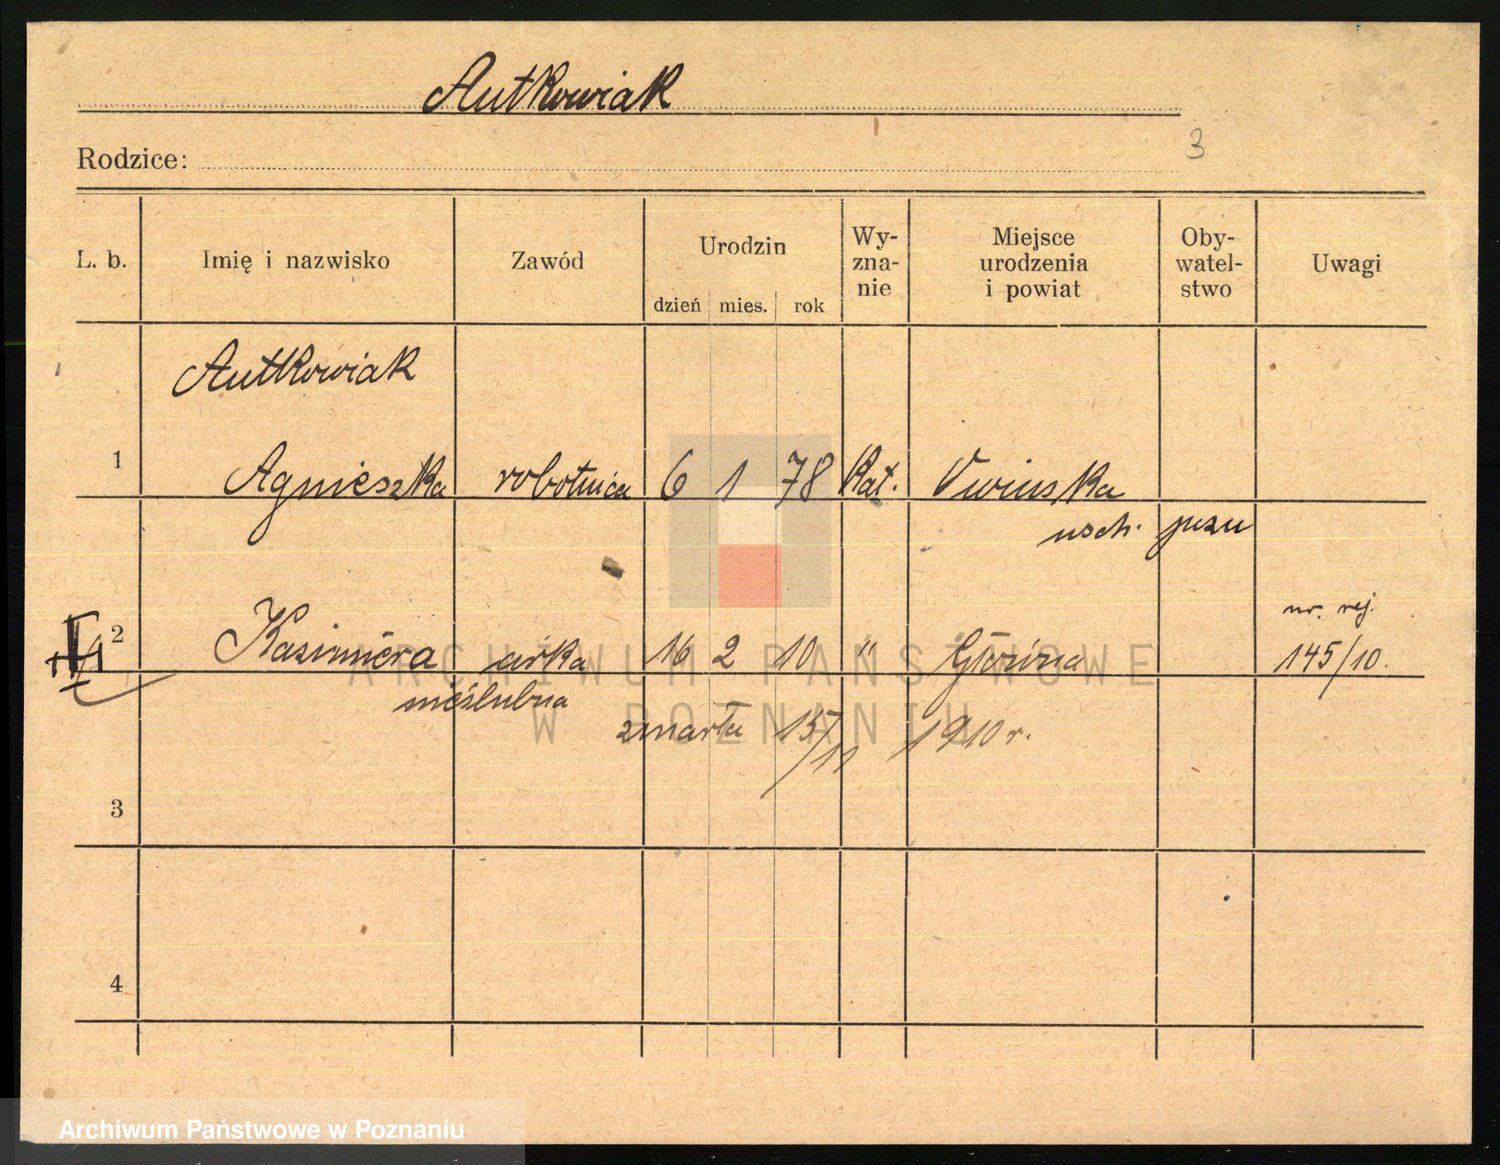 Antkowiak
3
Rodzice:
L. b. Imię i nazwisko Zawód Urodzin dzień mies. rok Wy-zna-nie Miejsce urodzenia i powiat Oby-watel-stwo Uwagi
Antkowiak
1 Agnieszka robotnica 6 1 78 Kat.
nr. rej.
2 Kazimiera córka 16 2 10 " Główna 145/10.
nieślubna
zmarła 15/11 1910 r.
3
4
ARCHIWUM PAŃSTWOWE
W POZNANIU
Archiwum Państwowe w Poznaniu